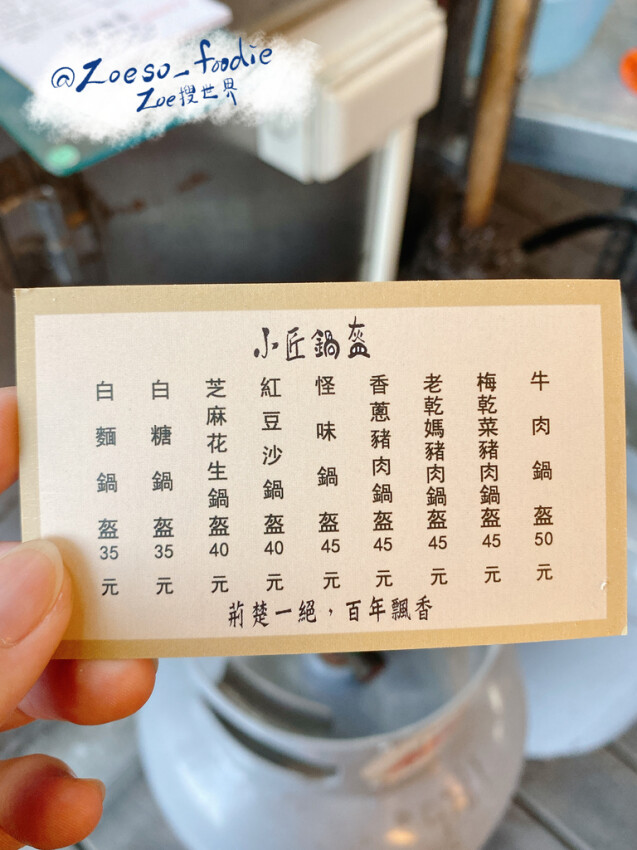 @Zoeso_foodie
Zoe搜世界
小匠鍋盔
牛肉鍋盔50元
梅乾菜豬肉鍋盔45元
老乾媽豬肉鍋盔45元
香蔥豬肉鍋盔45元
怪味鍋盔45元
紅豆沙鍋盔40元
芝麻花生鍋盔40元
白糖鍋盔35元
白麵鍋盔35元
荊楚一絕，百年飄香